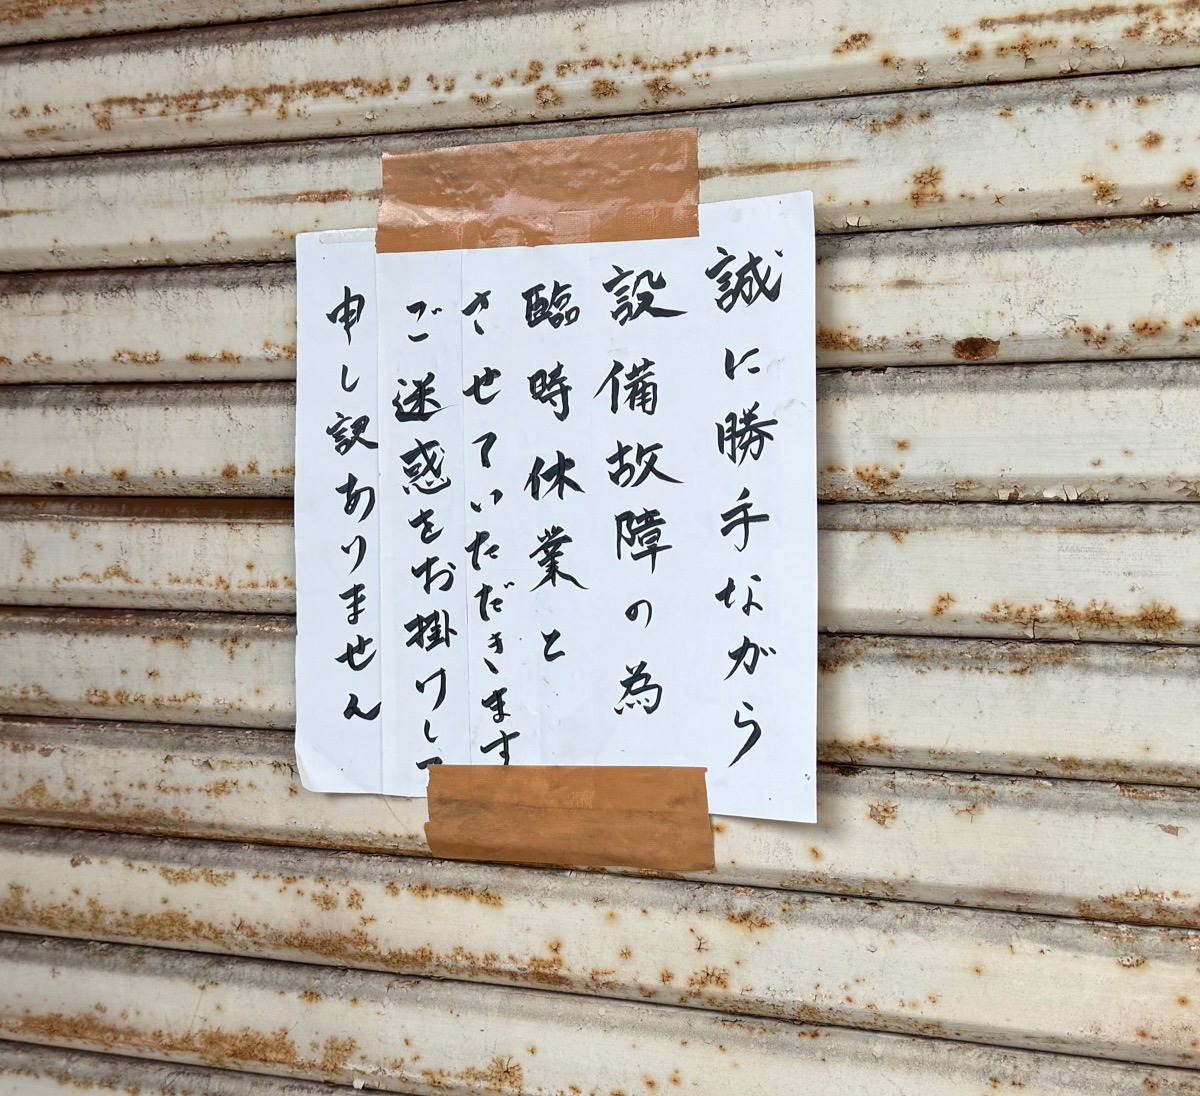 誠に勝手ながら
設備故障の為
臨時休業と
させていただきます
ご迷惑をお掛けして
申し訳ありません